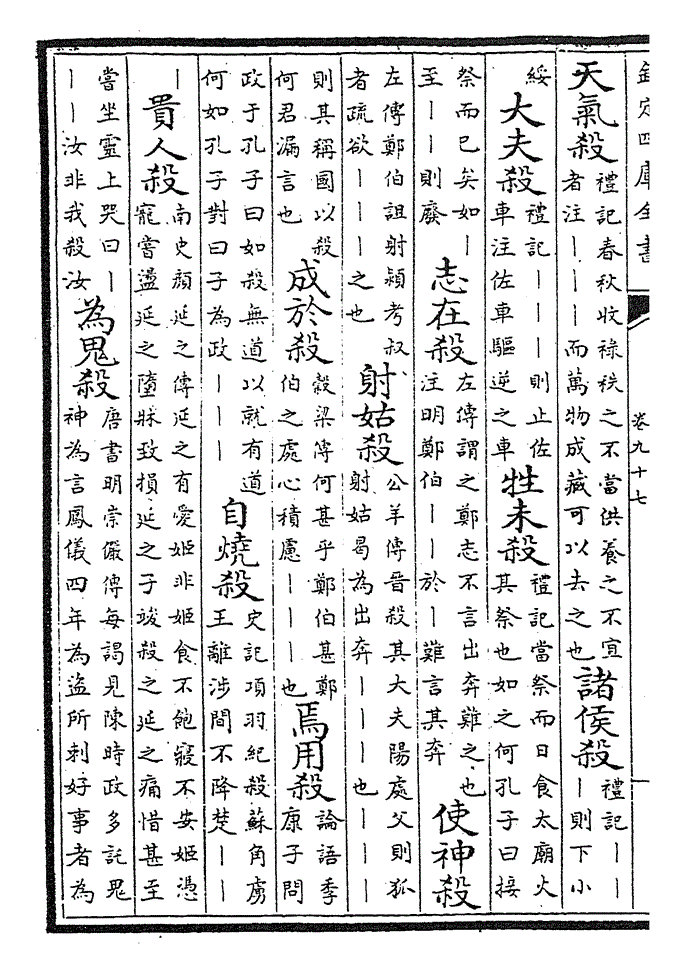 欽定四庫全書
卷九十七
天氣殺
禮記春秋收祿秩之不當供養之不宜
者注｜｜｜而萬物成藏可以去之也
諸侯殺
禮記｜｜
｜則下小
綏
大夫殺
禮記｜｜｜則止佐
車注佐車驅逆之車
牲未殺
禮記當祭而日食太廟火
其祭也如之何孔子曰接
祭而已矣如｜
至｜｜則廢
志在殺
左傳謂之鄭志不言出奔難之也
注明鄭伯｜｜於｜難言其奔
使神殺
左傳鄭伯詛射潁考叔
者疏欲｜｜｜之也
射姑殺
公羊傳晉殺其大夫陽處父則狐
射姑曷為出奔｜｜｜也｜｜｜
則其稱國以殺
何君漏言也
成於殺
穀梁傳何甚乎鄭伯甚鄭
伯之處心積慮｜｜｜也
焉用殺
論語季
康子問
政于孔子曰如殺無道以就有道
何如孔子對曰子為政｜｜｜
自燒殺
史記項羽紀殺蘇角虜
王離涉間不降楚｜｜
｜
貴人殺
南史顏延之傳延之有愛姬非姬食不飽寢不安姬憑
寵嘗盪延之墮牀致損延之子竣殺之延之痛惜甚至
嘗坐靈上哭曰｜
｜｜汝非我殺汝
為鬼殺
唐書明崇儼傳每謁見陳時政多託鬼
神為言鳳儀四年為盜所刺好事者為